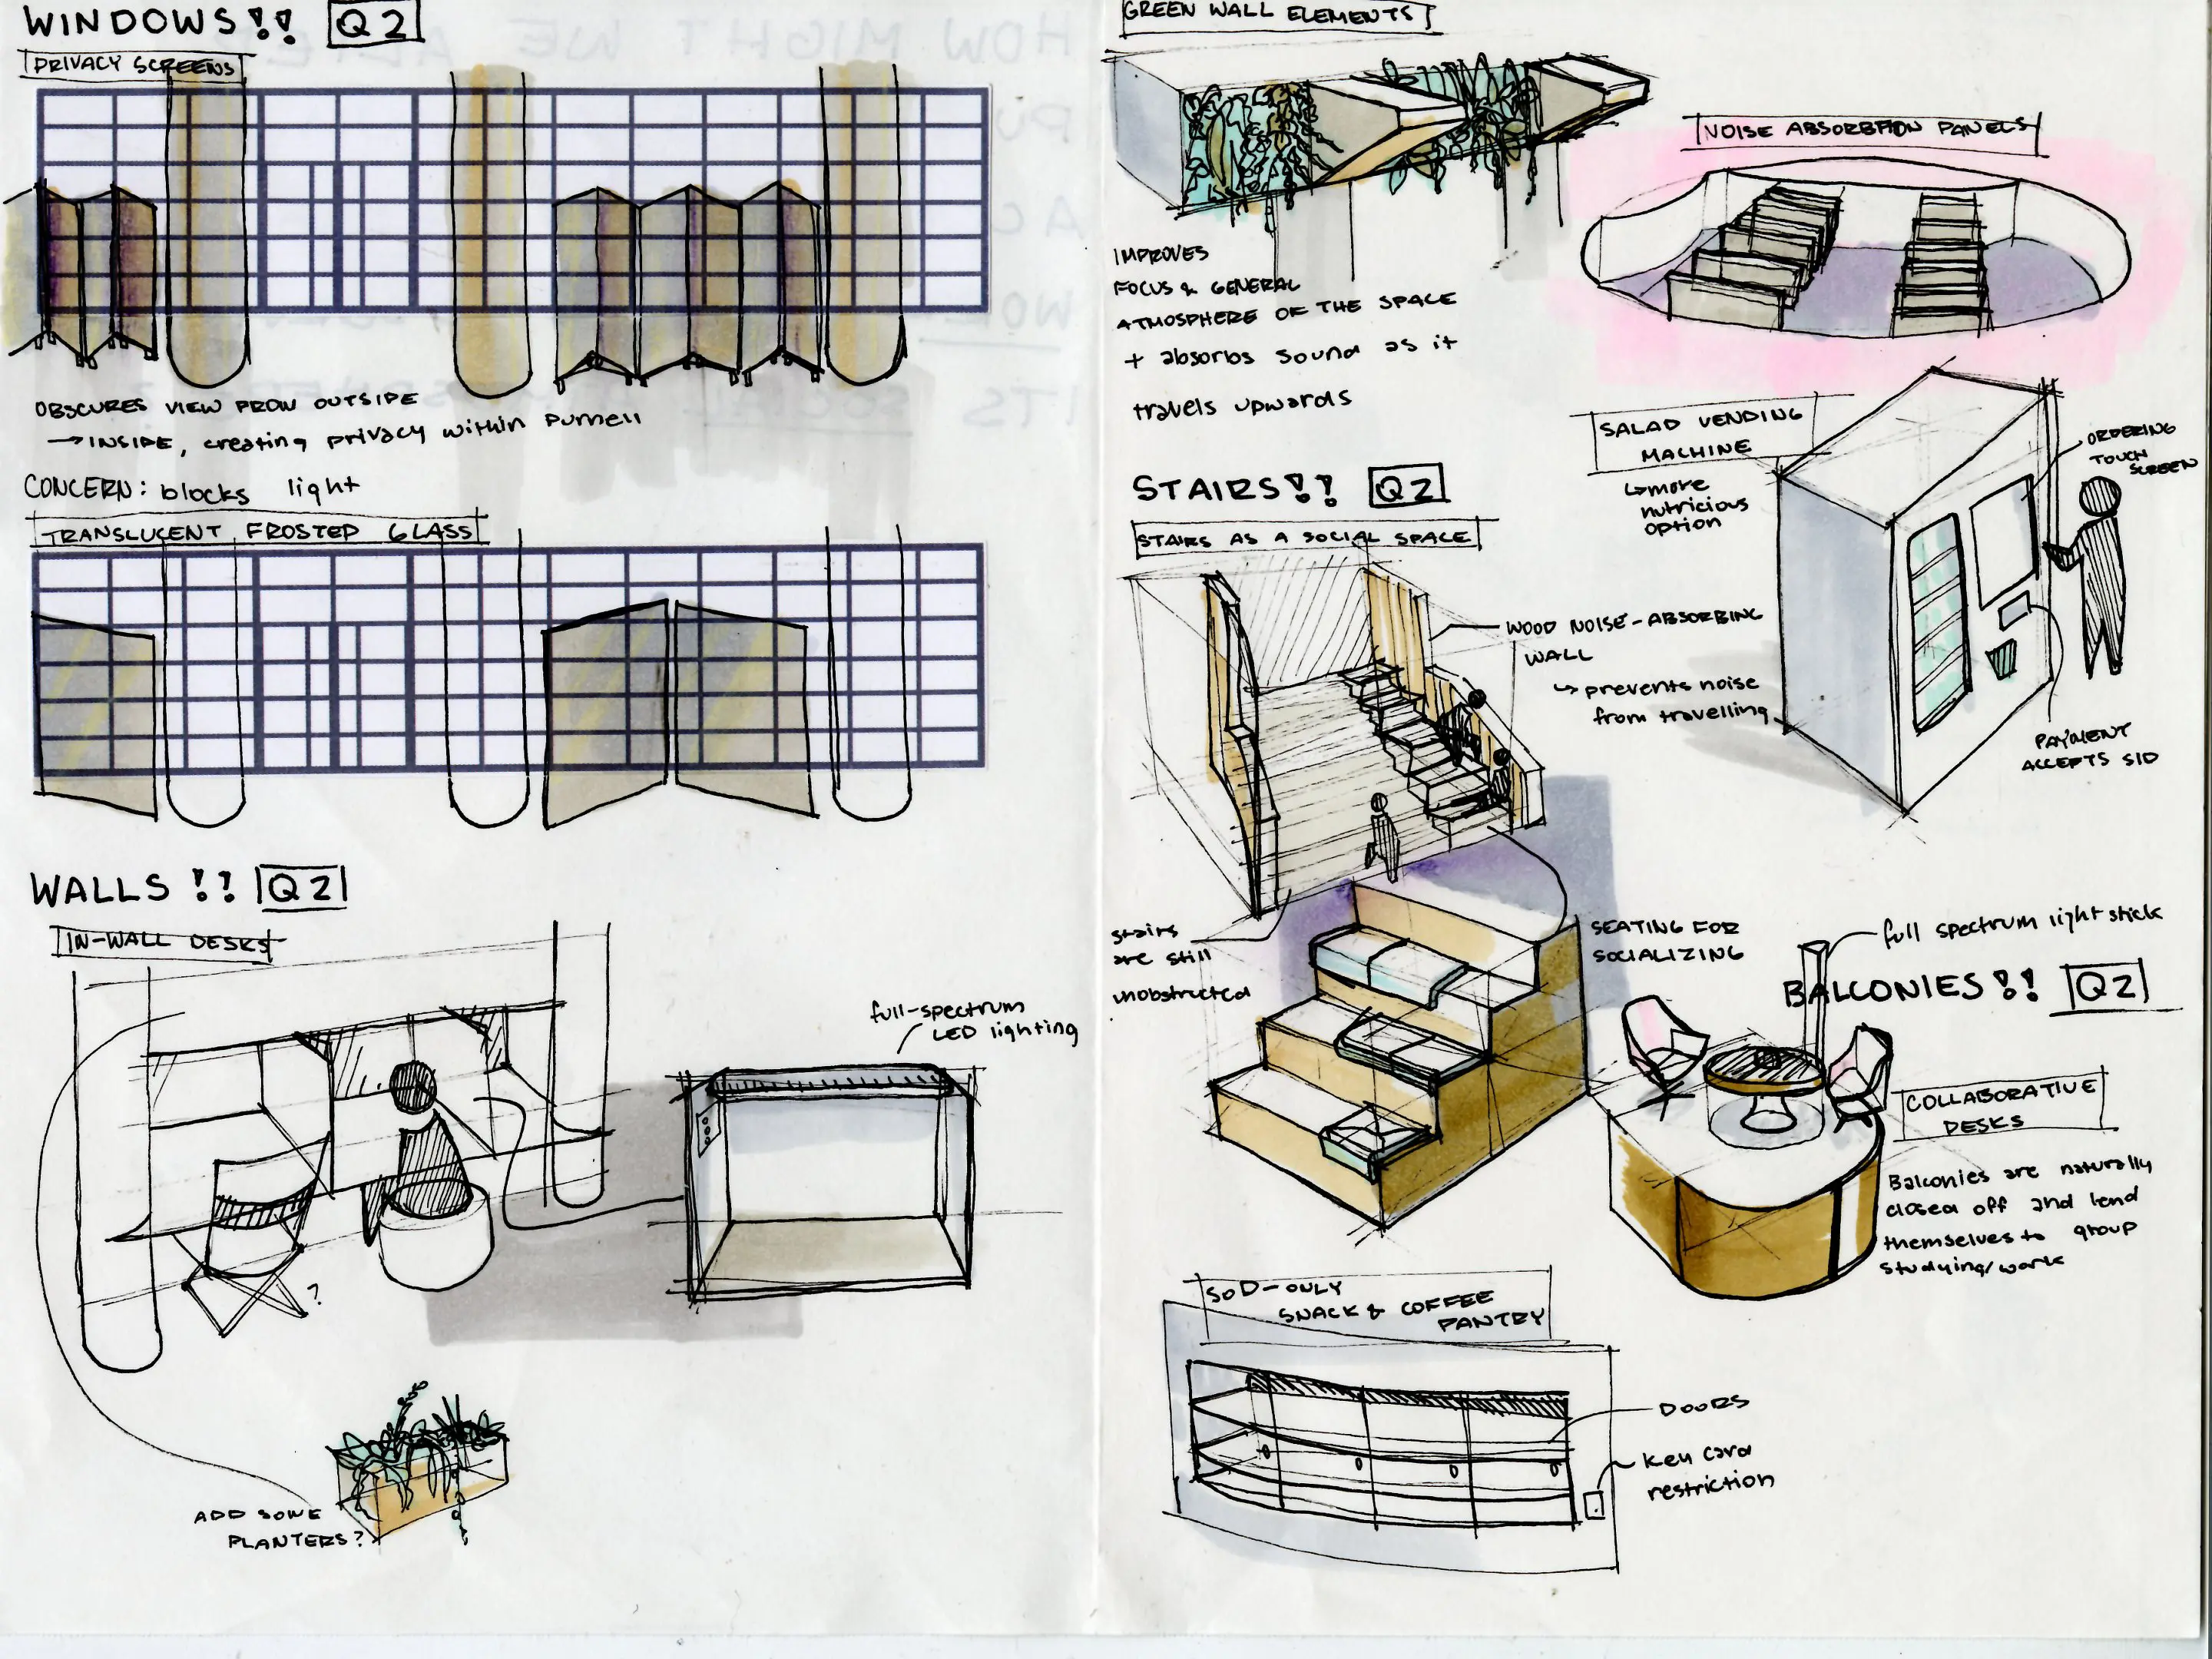 WINDOWS!! Q2
PRIVACY SCREENS
OBSCURES VIEW FROM OUTSIDE
→ INSIDE, creating privacy within Purnell
CONCERN: blocks light
TRANSLUCENT FROSTED GLASS
WALLS!! Q2
IN-WALL DESKS
full-spectrum
LED lighting
?
ADD SOME
PLANTERS?
GREEN WALL ELEMENTS
IMPROVES
FOCUS & GENERAL
ATMOSPHERE OF THE SPACE
+ absorbs sound as it
travels upwards
NOISE ABSORBTION PANELS
SALAD VENDING
MACHINE
↳ more
nutricious
option
ORDERING
TOUCH
SCREEN
PAYMENT
ACCEPTS SID
STAIRS!! Q2
STAIRS AS A SOCIAL SPACE
WOOD NOISE-ABSORBING
WALL
↳ prevents noise
from travelling
stairs
are still
unobstructed
SEATING FOR
SOCIALIZING
full spectrum light stick
BALCONIES!! Q2
COLLABORATIVE
DESKS
Balconies are naturally
closed off and lend
themselves to group
studying/work
SOD-ONLY
SNACK & COFFEE
PANTRY
DOORS
key card
restriction